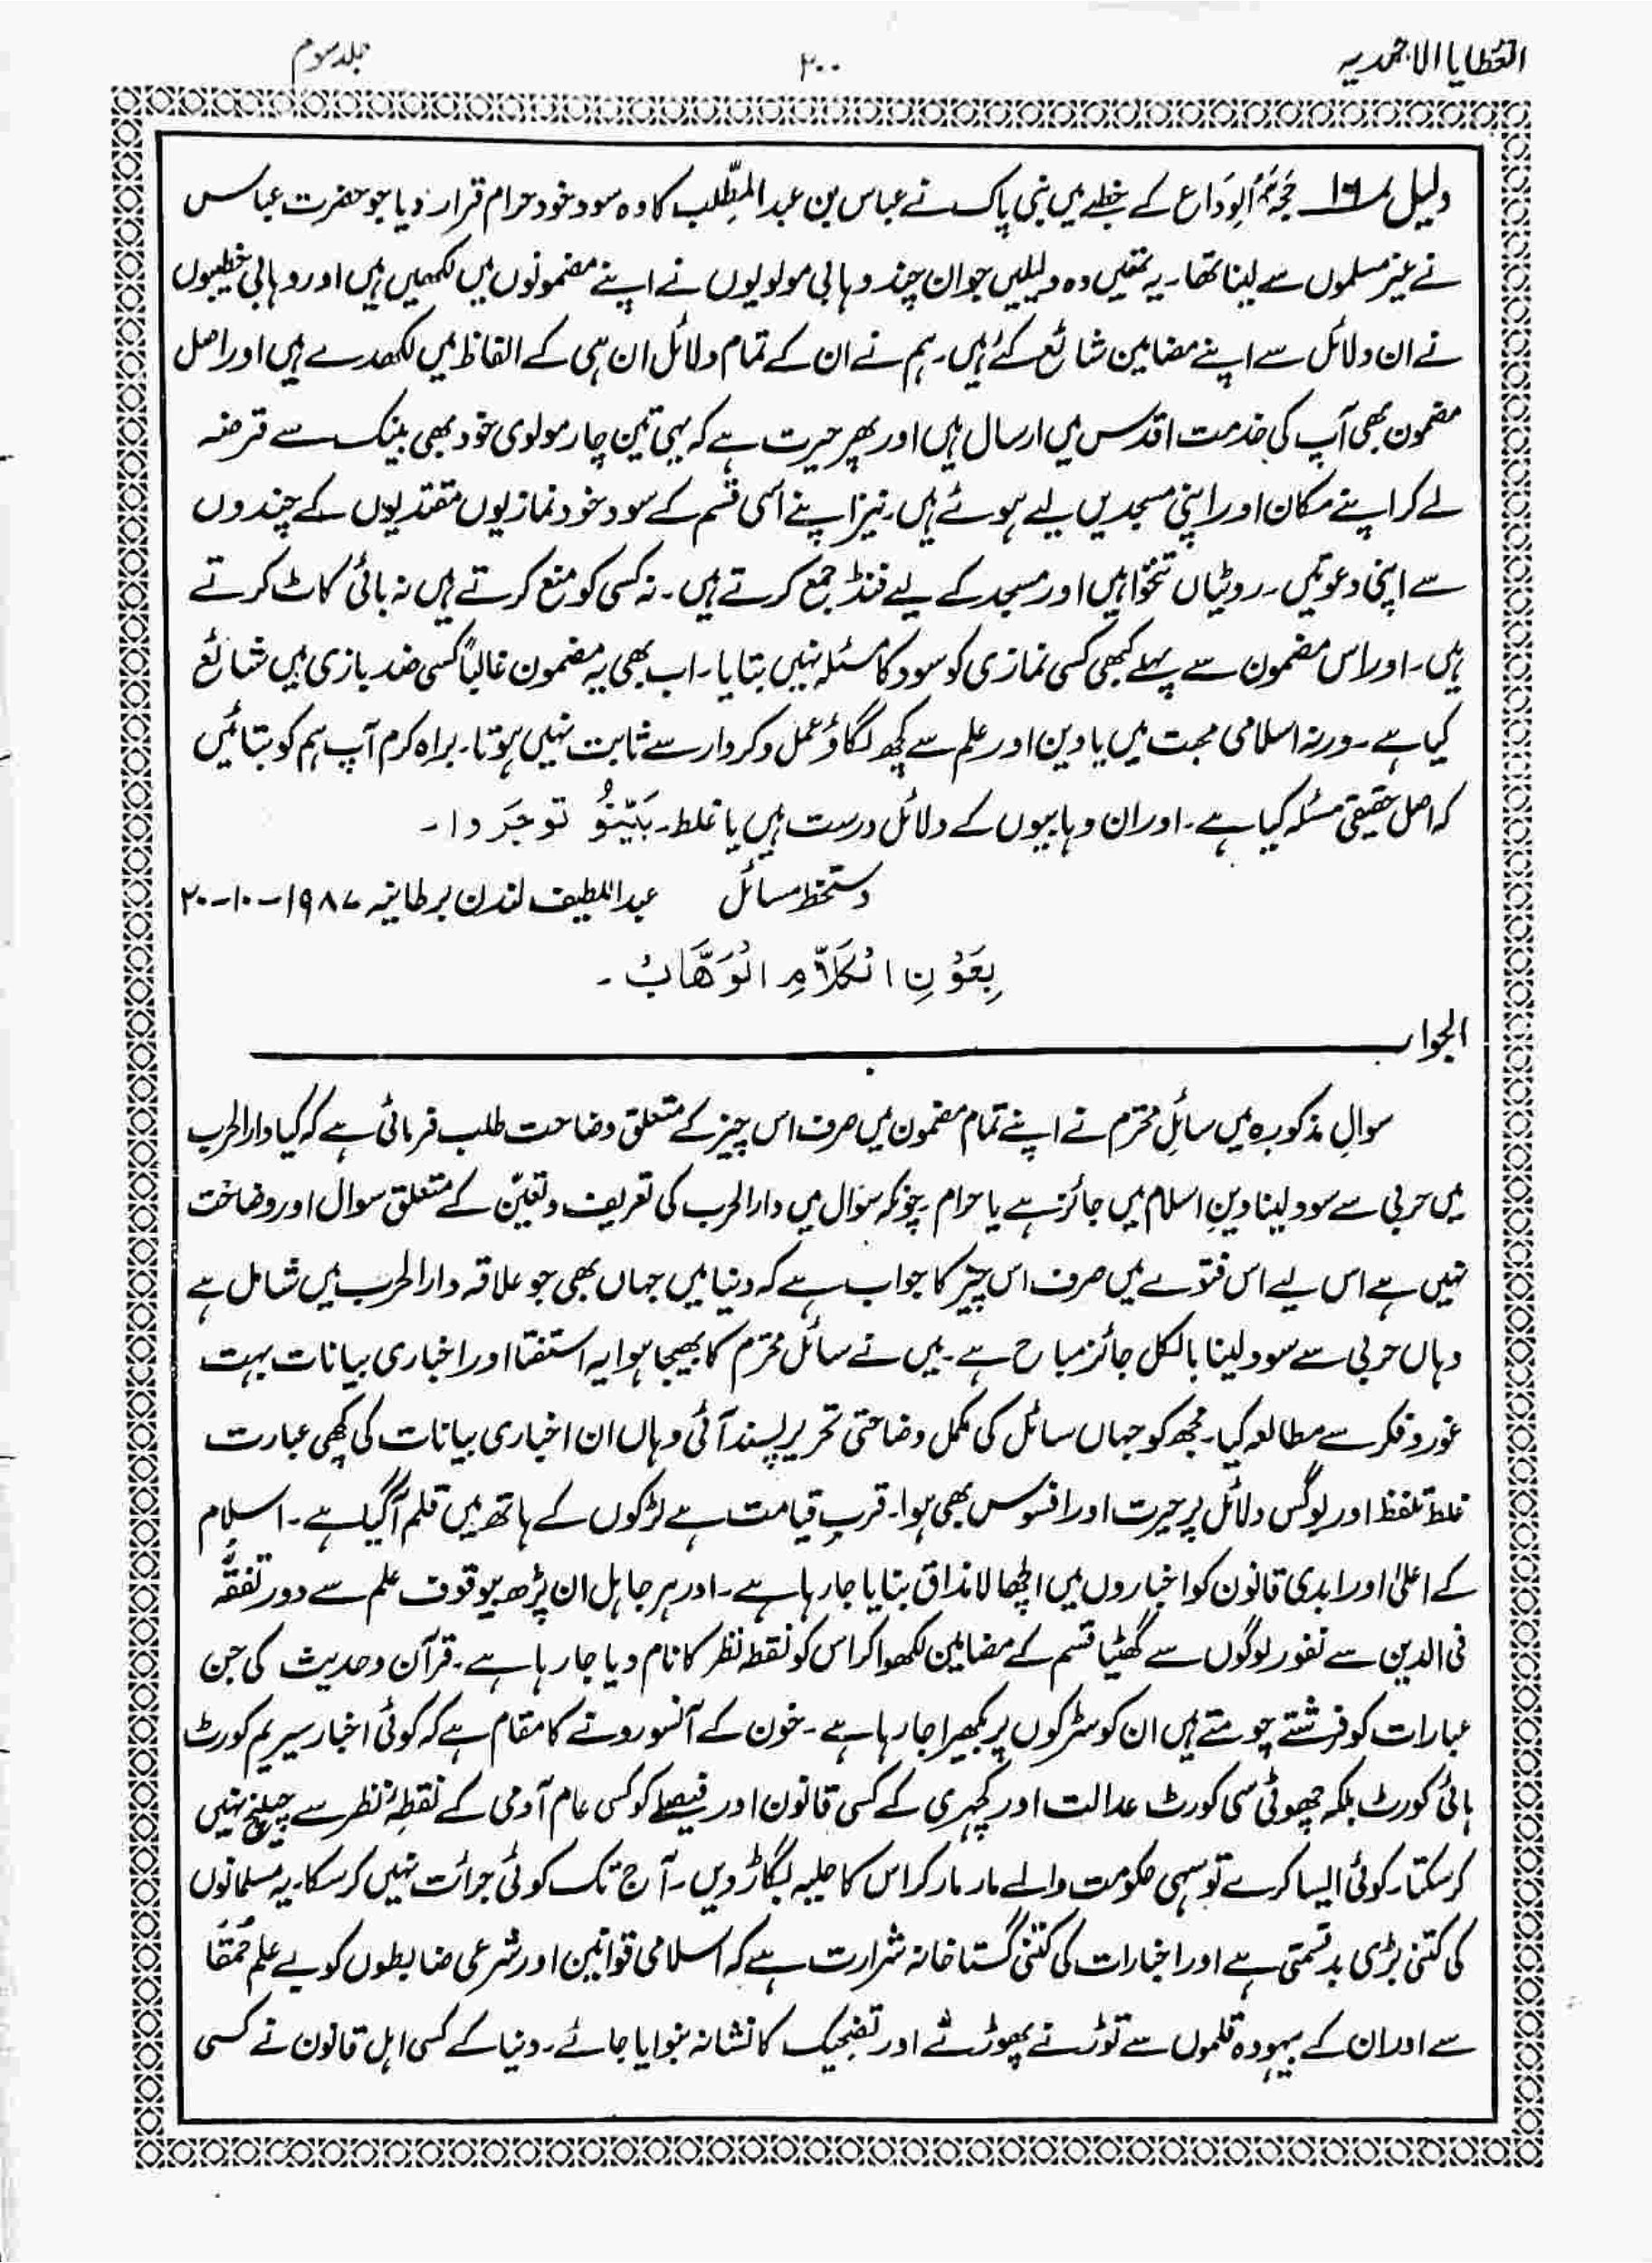 العطایا الاحمدیہ ۲۰۰ جلد سوم
دلیل نمبر ۱۶ حَجَۃُ الْوِدَاع کے خطبے میں نبی پاک نے عباس بن عبد المطّلب کا وہ سود خود حرام قرار دیا جو حضرت عباس
نے غیر مسلموں سے لینا تھا۔ یہ تھیں وہ دلیلیں جو ان چند وہابی مولویوں نے اپنے مضمونوں میں لکھیں ہیں اور وہابی خطیبوں
نے ان دلائل سے اپنے مضامین شائع کئے ہیں۔ ہم نے ان کے تمام دلائل ان ہی کے الفاظ میں لکھدے ہیں اور اصل
مضمون بھی آپ کی خدمت اقدس میں ارسال ہیں اور پھر حیرت ہے کہ یہی تین چار مولوی خود بھی بینک سے قرضہ
لے کر اپنے مکان اور اپنی مسجدیں لیے ہوئے ہیں۔ نیز اپنے اسی قسم کے سود خود نمازیوں مقتدیوں کے چندوں
سے اپنی دعوتیں۔ روٹیاں تنخواہیں اور مسجد کے لیے فنڈ جمع کرتے ہیں۔ نہ کسی کو منع کرتے ہیں نہ بائی کاٹ کرتے
ہیں۔ اور اس مضمون سے پہلے کبھی کسی نمازی کو سود کا مسئلہ نہیں بتایا۔ اب بھی یہ مضمون غالباً کسی ضد بازی میں شائع
کیا ہے۔ ورنہ اسلامی محبت میں یا دین اور علم سے کچھ لگاؤ عمل و کردار سے ثابت نہیں ہوتا۔ براہ کرم آپ ہم کو بتائیں
کہ اصل حقیقی مسئلہ کیا ہے۔ اور ان وہابیوں کے دلائل درست ہیں یا غلط۔ بَیِّنُوْ تو جَرَوا۔
دستخط سائل عبد اللطیف لندن برطانیہ ۱۹۸۷-۱۰-۲۰
بِعَوْنِ الْعَلَّامِ الْوَھَّابْ۔
الجواب
سوالِ مذکورہ میں سائلِ محترم نے اپنے تمام مضمون میں صرف اس چیز کے متعلق وضاحت طلب فرمائی ہے کہ کیا دار الحرب
میں حربی سے سود لینا دینِ اسلام میں جائز ہے یا حرام۔ چونکہ سوال میں دار الحرب کی تعریف و تعیّن کے متعلق سوال اور وضاحت
نہیں ہے اس لیے اس فتوے میں صرف اس چیز کا جواب ہے کہ دنیا میں جہاں بھی جو علاقہ دار الحرب میں شامل ہے
وہاں حربی سے سود لینا بالکل جائز مباح ہے۔ میں نے سائل محترم کا بھیجا ہوا یہ استفتا اور اخباری بیانات بہت
غور و فکر سے مطالعہ کیا۔ مجھ کو جہاں سائل کی مکمل وضاحتی تحریر پسند آئی وہاں ان اخباری بیانات کی کچی عبارت
غلط تلفظ اور بوگس دلائل پر حیرت اور افسوس بھی ہوا۔ قربِ قیامت ہے لڑکوں کے ہاتھ میں قلم آ گیا ہے۔ اسلام
کے اعلیٰ اور ابدی قانون کو اخباروں میں اچھالا مذاق بنایا جا رہا ہے۔ اور ہر جاہل ان پڑھ بیوقوف علم سے دور تفقُّہ
فی الدین سے نفور لوگوں سے گھٹیا قسم کے مضامین لکھوا کر اس کو نقطہ نظر کا نام دیا جا رہا ہے۔ قرآن و حدیث کی جن
عبارات کو فرشتے چومتے ہیں ان کو سڑکوں پر بکھیرا جا رہا ہے۔ خون کے آنسو رونے کا مقام ہے کہ کوئی اخبار سپریم کورٹ
ہائی کورٹ بلکہ چھوٹی سی کورٹ عدالت اور کچہری کے کسی قانون اور فیصلے کو کسی عام آدمی کے نقطۂ نظر سے چیلنج نہیں
کر سکتا۔ کوئی ایسا کرے تو سہی حکومت والے مار مار کر اس کا حلیہ بگاڑ دیں۔ آج تک کوئی جرائت نہیں کر سکا۔ یہ مسلمانوں
کی کتنی بڑی بد قسمتی ہے اور اخبارات کی کتنی گستاخانہ شرارت ہے کہ اسلامی قوانین اور شرعی ضابطوں کو بے علم حُمَقَا
سے اور ان کے بیہودہ قلموں سے توڑنے پھوڑنے اور تضحیک کا نشانہ بنوایا جائے۔ دنیا کے کسی اہل قانون نے کسی